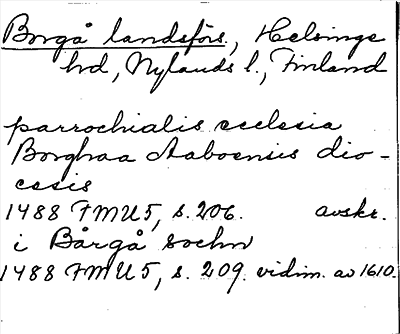 Borgå landsförs., Helsinge
hd, Nylands l., Finland
parrochialis ecclesia
Borghaa Aaboensis dio-
cesis
1488 FMU5, s. 206. avskr.
i Bårgå sochn
1488 FMU5, s. 209. vidim. av 1610.